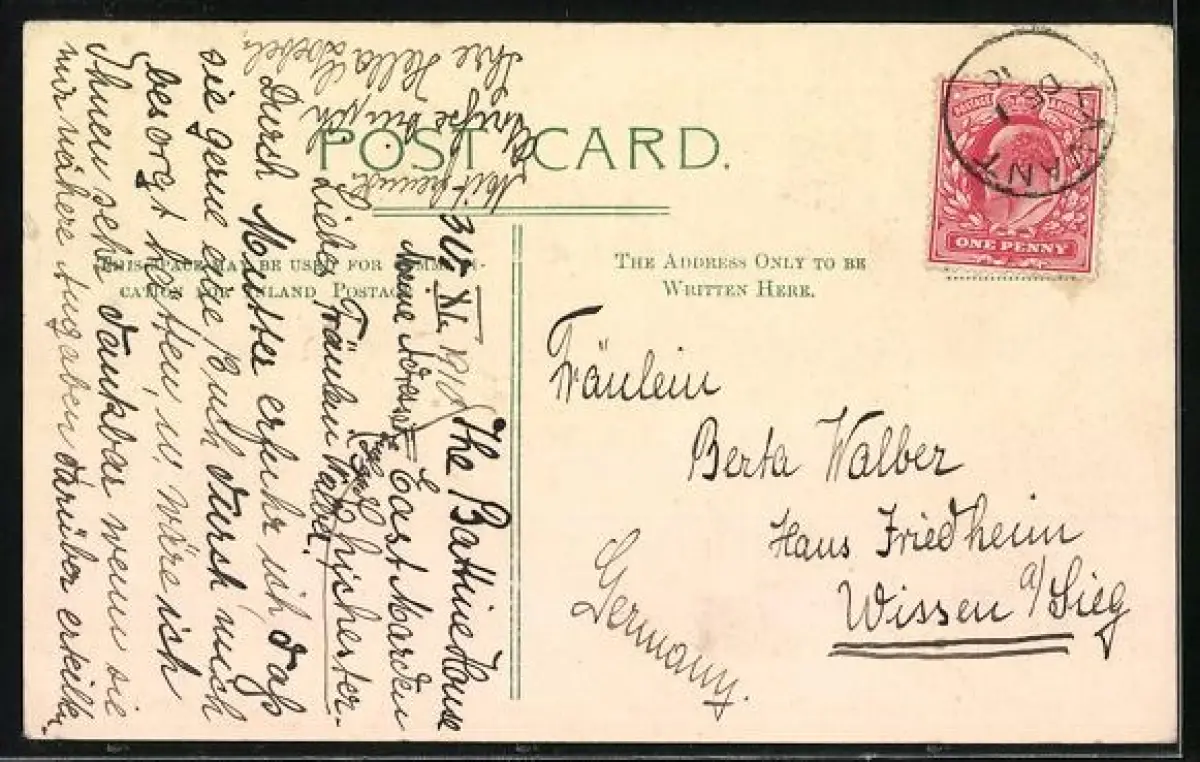 POST CARD.
THIS SPACE MAY BE USED FOR COMMUNI-
CATION FOR INLAND POSTAGE
THE ADDRESS ONLY TO BE
WRITTEN HERE.
ONE PENNY
Fräulein
Berta Walber
Haus Friedheim
Wissen a/Sieg
Germany.
XI. 1910 The Battine House
Meine Adresse East Marden
Chichester.
Liebe Fräulein Walber.
Durch Mutter erfuhr ich, daß
sie gerne ein Buch durch mich
besorgt hätten, u. wäre ich
Ihnen sehr dankbar wenn sie
mir nähere Angaben darüber erteilten.
Mit freundl.
Ihre Hella